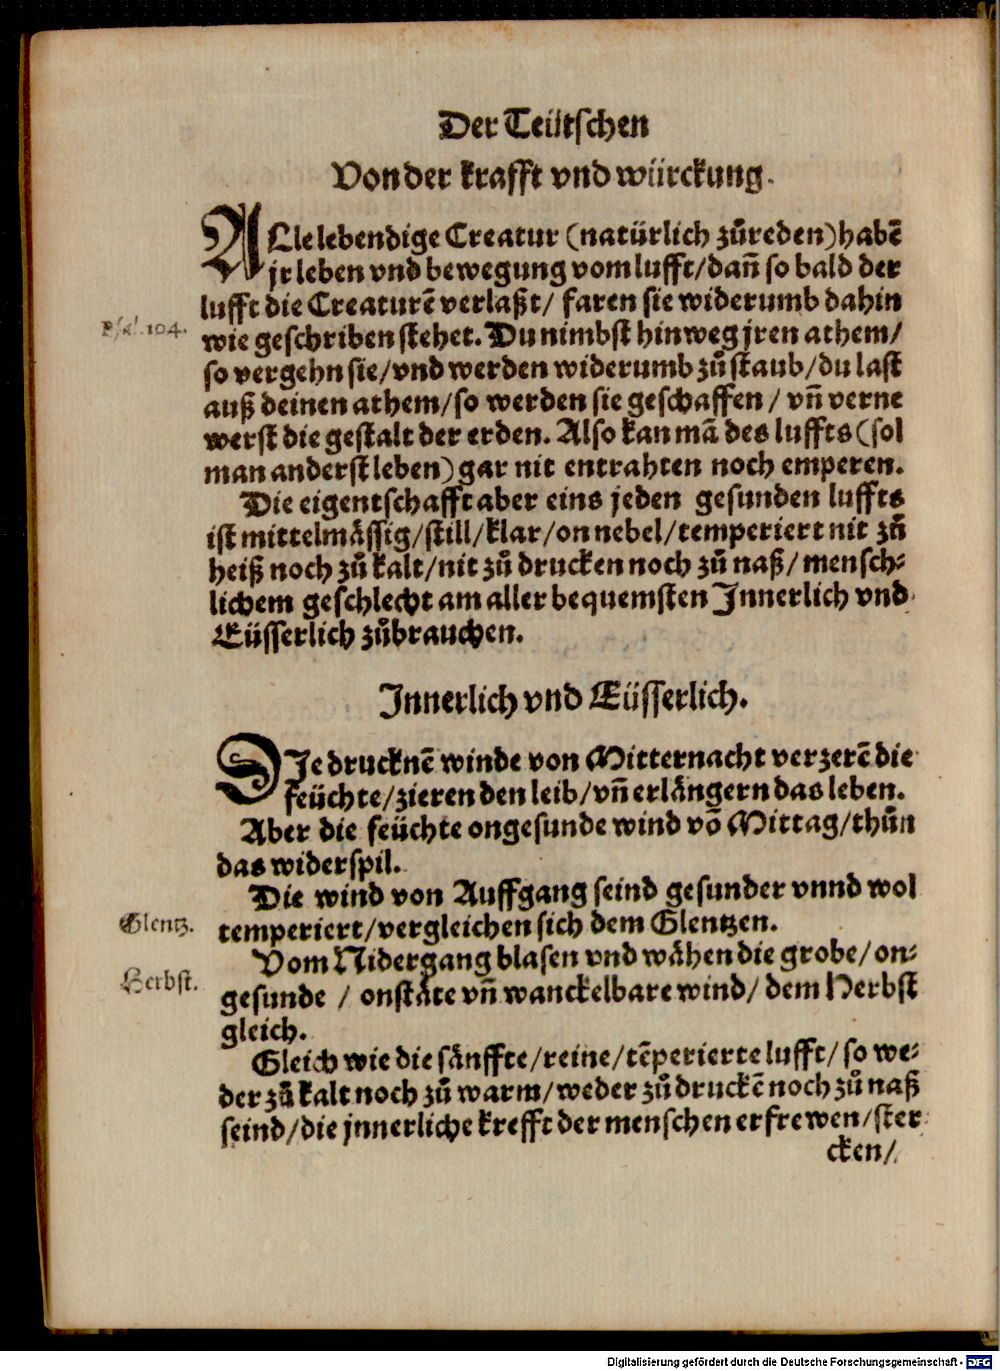 Der Teütschen
Von der krafft vnd würckung.
ALle lebendige Creatur (natürlich zůreden) habē
jr leben vnd bewegung vom lufft/dañ so bald der
lufft die Creaturē verlaßt/ faren sie widerumb dahin
Psal.104.
wie geschriben stehet. Du nimbst hinweg jren athem/
so vergehn sie/vnd werden widerumb zů staub/du last
auß deinen athem/so werden sie geschaffen / vñ verne
werst die gestalt der erden. Also kan mā des luffts (sol
man anderst leben) gar nit entrahten noch emperen.
Die eigentschafft aber eins jeden gesunden luffts
ist mittelmåssig/still/klar/on nebel/temperiert nit zů
heiß noch zů kalt/nit zů drucken noch zů naß/ mensch-
lichem geschlecht am aller bequemsten Innerlich vnd
Eüsserlich zůbrauchen.
Innerlich vnd Eüsserlich.
DIe drucknē winde von Mitternacht verzerē die
feüchte/zieren den leib/vñ erlångern das leben.
Aber die feüchte ongesunde wind vō Mittag/thůn
das widerspil.
Die wind von Auffgang seind gesunder vnnd wol
Glentz.
temperiert/vergleichen sich dem Glentzen.
Vom Nidergang blasen vnd wåhen die grobe/ on-
Herbst.
gesunde / onståte vñ wanckelbare wind/ dem Herbst
gleich.
Gleich wie die sånffte/reine/tēperierte lufft/ so we-
der zů kalt noch zů warm/weder zů druckē noch zů naß
seind/die jnnerliche krefft der menschen erfrewen/ster
cken/
Digitalisierung gefördert durch die Deutsche Forschungsgemeinschaft - DFG